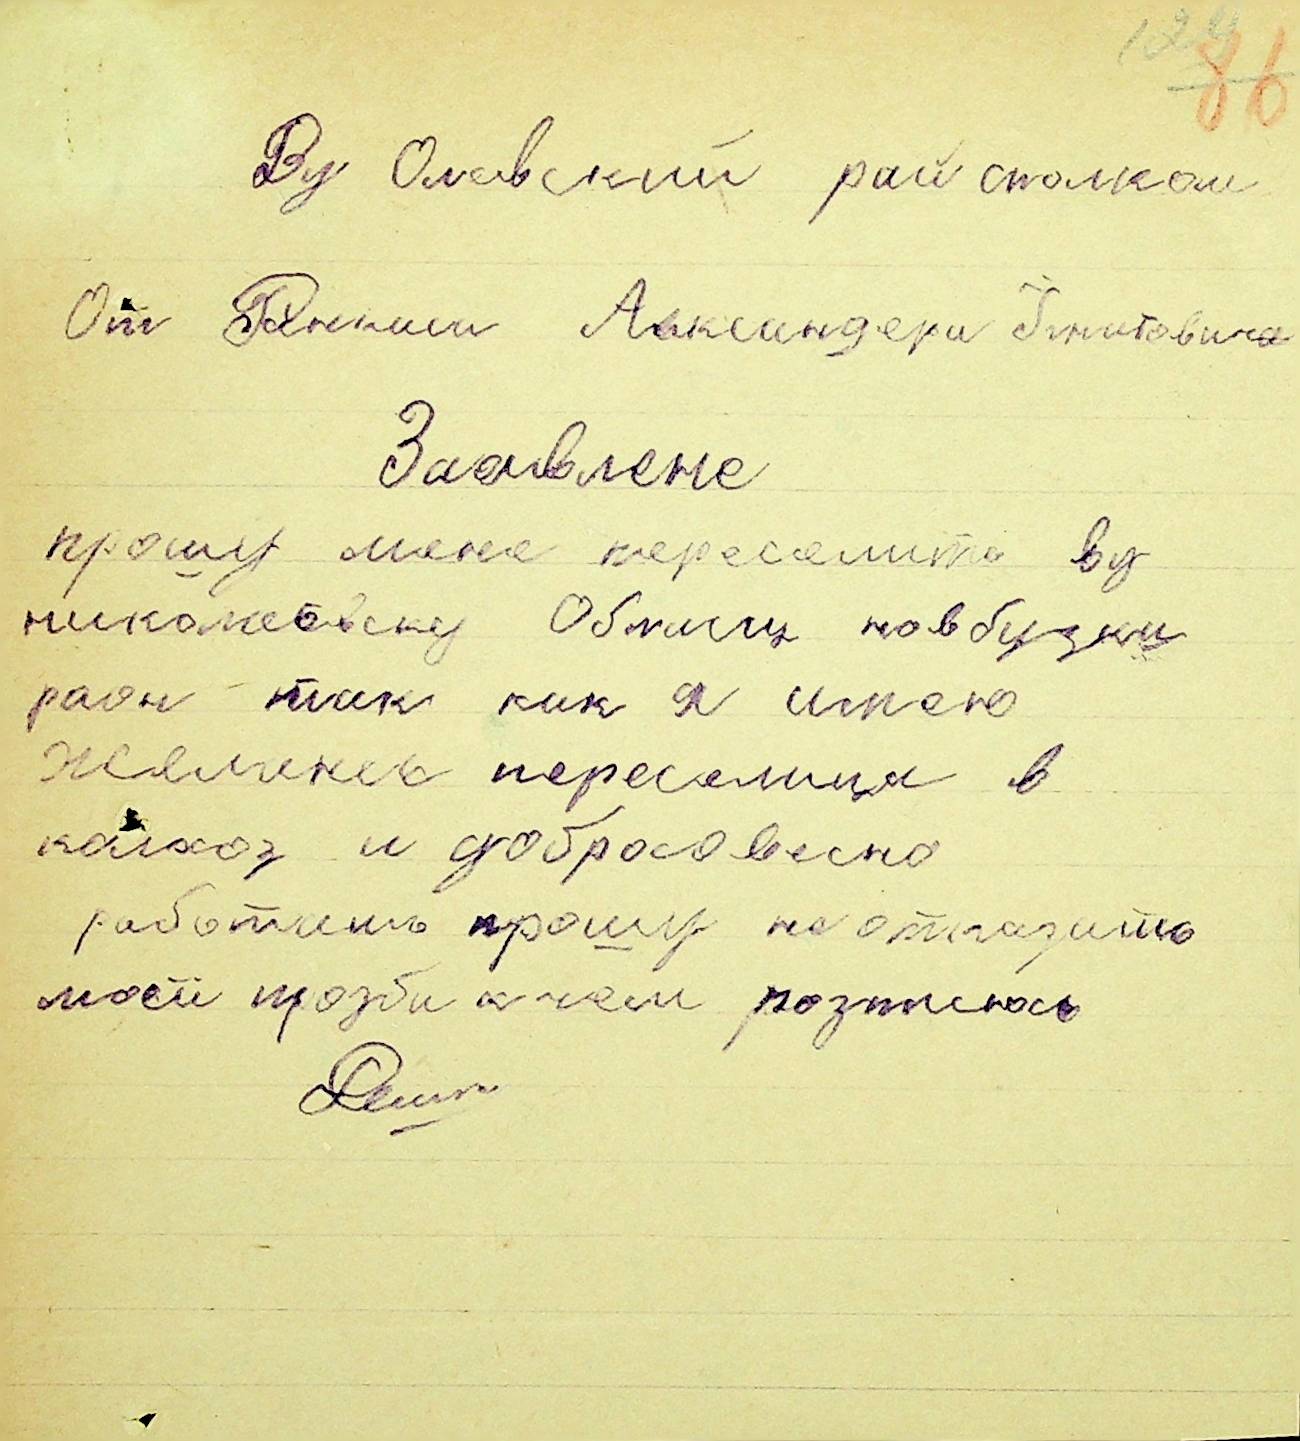 124
86
Ву Олевский рай сполком
От Александера Игнатовича
Заавлене
прошу мене переселить ву
николаевску Область новбузки
раон так как я имею
желанье переселица в
колхоз и добросовесно
работать прошу не отказить
моей прозби к чем розписюсь